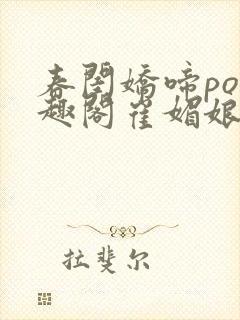 春閨嬌啼po
趣閣崔媚娘
拉斐尔